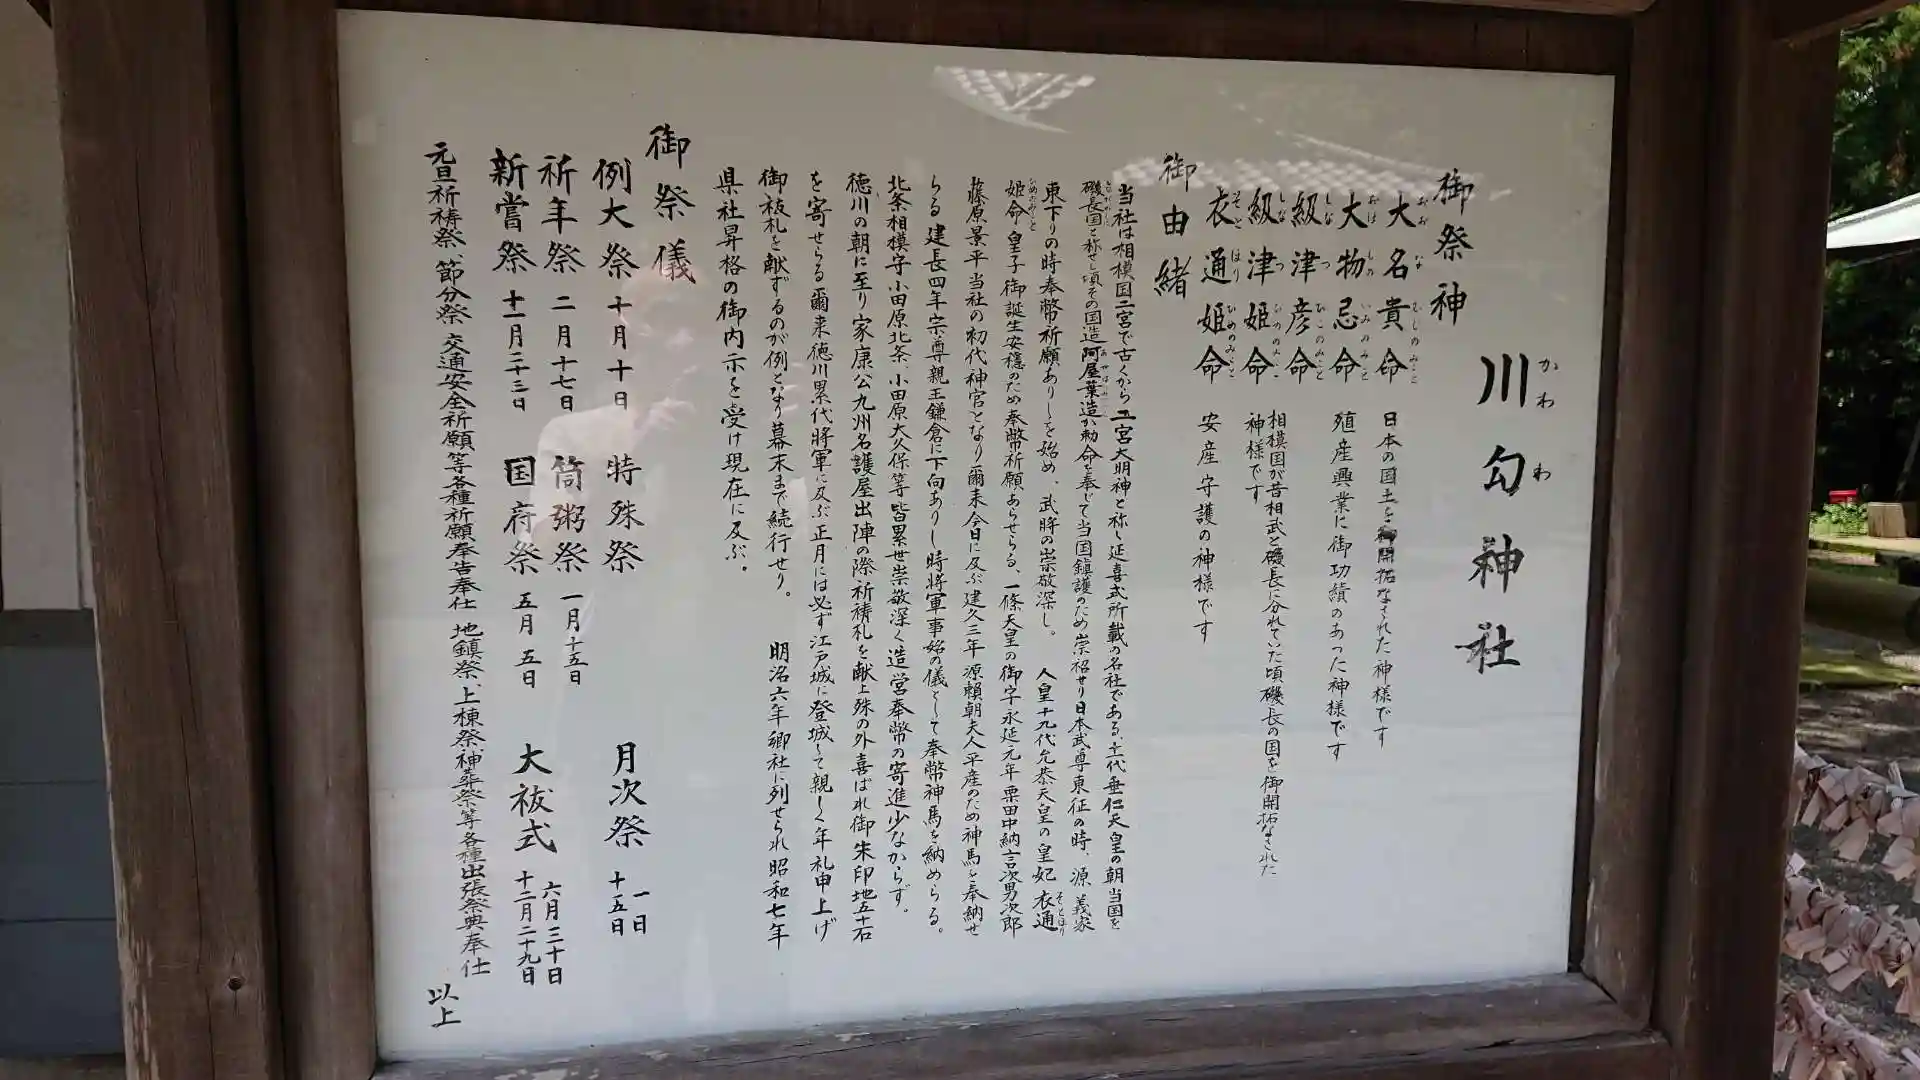 川勾神社
かわわ
御祭神
大名貴命 日本の国土を御開拓なされた神様です
おおなむちのみこと
大物忌命 殖産興業に御功績のあった神様です
おほものいみのみこと
級津彦命
しなつひこのみこと
級津姫命
しなつひめのみこと
相模国が昔相武と磯長に分れていた頃磯長の国を御開拓なされた
神様です
衣通姫命 安産守護の神様です
そとほりひめのみこと
御由緒
当社は相模国二宮で古くから二宮大明神と称し延喜式所載の名社である、十一代垂仁天皇の朝当国を
磯長国と称せし頃その国造阿屋葉造が勅命を奉じて当国鎮護のため崇祀せり日本武尊東征の時、源義家
東下りの時奉幣祈願ありしを始め、武将の崇敬深し。 人皇十九代允恭天皇の皇妃衣通
そとほり
姫命皇子御誕生安穏のため奉幣祈願あらせらる、一條天皇の御宇永延元年粟田中納言次男次郎
ひめのみこと
藤原景平当社の初代神官となり爾来今日に及ぶ建久三年源頼朝夫人平産のため神馬を奉納せ
らる 建長四年宗尊親王鎌倉に下向ありし時将軍事始の儀として奉幣神馬を納めらる。
北条相模守小田原北条、小田原大久保等皆累世崇敬深く造営奉幣の寄進少なからず。
徳川の朝に至り家康公九州名護屋出陣の際祈祷札を献上殊の外喜ばれ御朱印地五十石
を寄せらる爾来徳川累代将軍に及ぶ正月には必ず江戸城に登城して親しく年礼申上げ
御祓札を献ずるのが例となり幕末まで続行せり。 明治六年郷社に列せられ昭和七年
県社昇格の御内示を受け現在に及ぶ。
御祭儀
例大祭 十月十日 特殊祭 月次祭 一日 十五日
祈年祭 二月十七日 筒粥祭 一月十五日
新嘗祭 十一月二十三日 国府祭 五月五日 大祓式 六月三十日 十二月二十九日
元旦祈祷祭、節分祭 交通安全祈願等各種祈願奉告奉仕 地鎮祭、上棟祭、神葬祭等各種出張祭典奉仕
以上